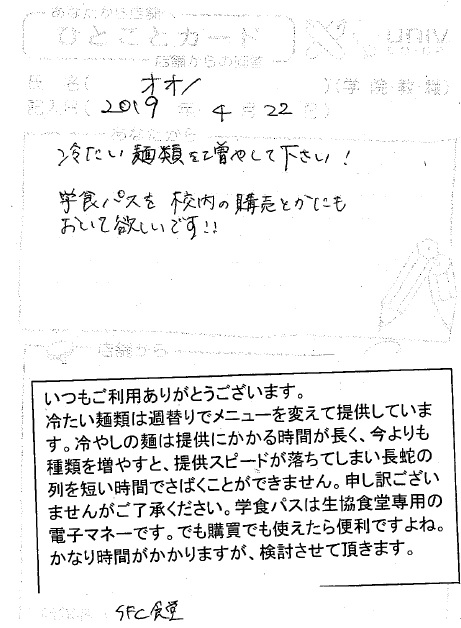 あなたから店舗
ひとことカード
univ
店舗からの回答
氏 名( オオノ )(学 院 教 職)
記入日( 2019 年 4 月 22 日)
あなたから
冷たい麺類を増やして下さい!
学食パスを校内の購売とかにも
おいて欲しいです!!
店舗から
いつもご利用ありがとうございます。
冷たい麺類は週替りでメニューを変えて提供していま
す。冷やしの麺は提供にかかる時間が長く、今よりも
種類を増やすと、提供スピードが落ちてしまい長蛇の
列を短い時間でさばくことができません。申し訳ござい
ませんがご了承ください。学食パスは生協食堂専用の
電子マネーです。でも購買でも使えたら便利ですよね。
かなり時間がかかりますが、検討させて頂きます。
SFC食堂